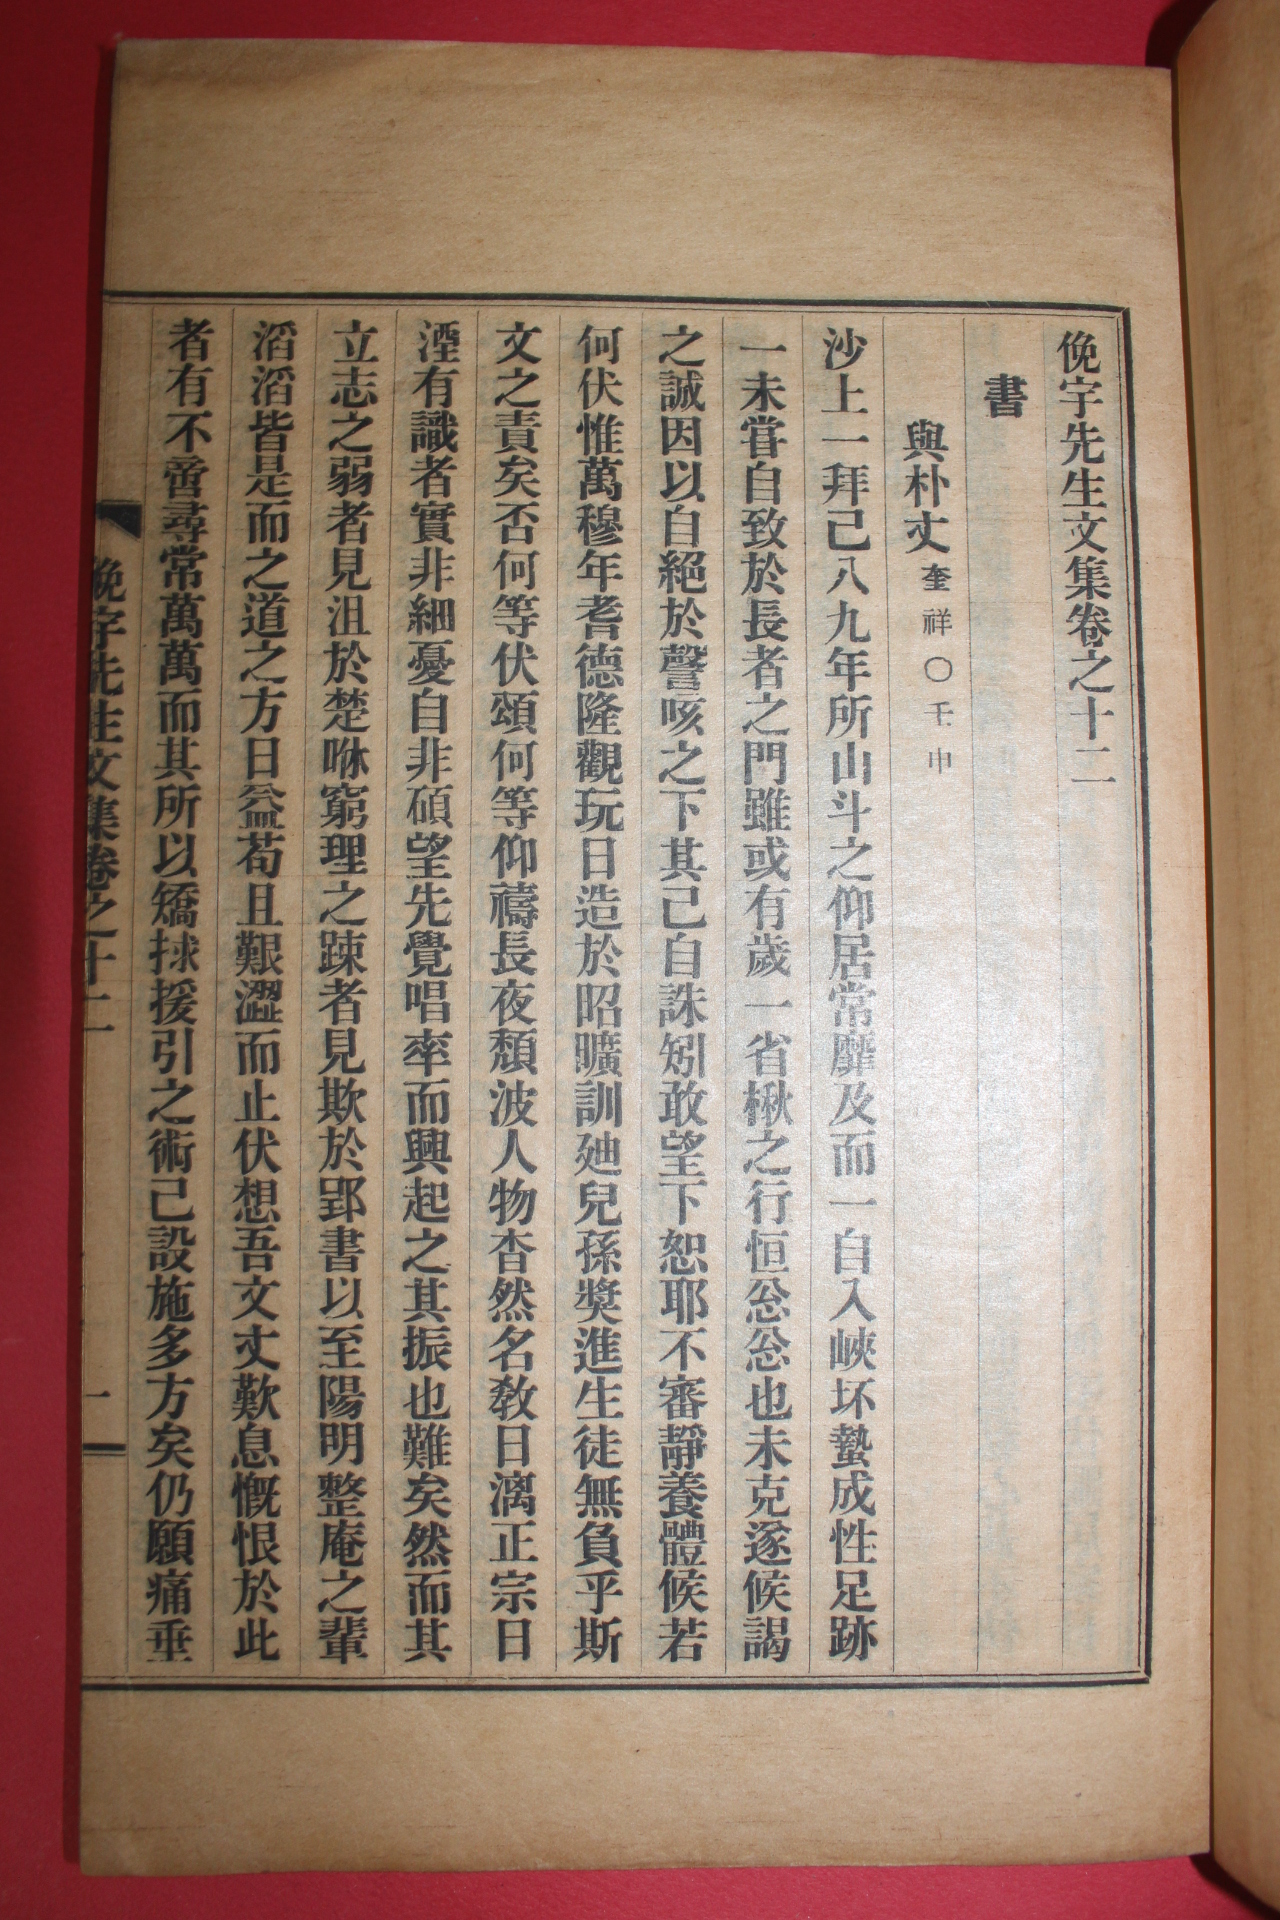 俛宇先生文集卷之十二
書
與朴丈奎祥○壬申
沙上一拜已八九年所山斗之仰居常靡及而一自入峽坏蟄成性足跡
一未甞自致於長者之門雖或有歲一省楸之行恒忩忩也未克遂候謁
之誠因以自絕於謦咳之下其已自誅矧敢望下恕耶不審靜養體候若
何伏惟萬穆年耆德隆觀玩日造於昭曠訓廸兒孫奬進生徒無負乎斯
文之責矣否何等伏頌何等仰禱長夜頹波人物杳然名敎日漓正宗日
湮有識者實非細憂自非碩望先覺唱率而興起之其振也難矣然而其
立志之弱者見沮於楚咻窮理之踈者見欺於郢書以至陽明整庵之輩
滔滔皆是而之道之方日益苟且艱澀而止伏想吾文丈歎息慨恨於此
者有不啻尋常萬萬而其所以矯捄援引之術已設施多方矣仍願痛垂
俛宇先生文集卷之十二
一